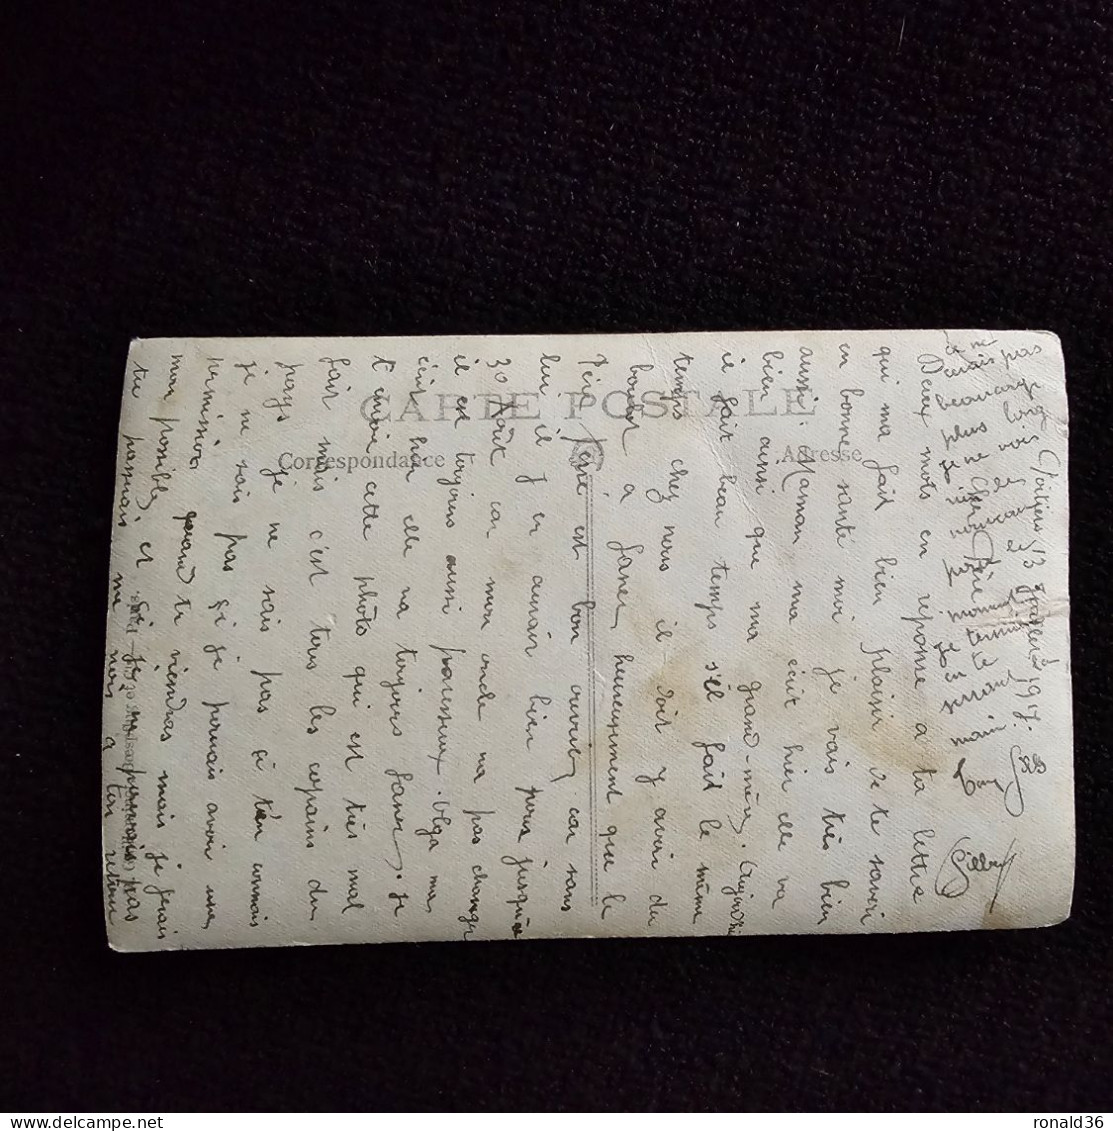 Poitiers 13 1917.
Cher
Deux mots en reponse a ta lettre
qui ma fait bien plaisir de te savoir
en bonne santé moi je vais très bien
aussi. Maman ma écrit hier elle va
bien ainsi que ma grand-mère. Aujourd'hui
il fait beau temps s'il fait le même
temps chez nous il doit y avoir du
boulot à faner heureusement que le
Père est bon ouvrier car sans
lui il y en aurait bien pour jusqu'au
30 Août car mon oncle na pas changé
il est toujours aussi paresseux. Olga ma
écrit hier elle va toujours faner. Je
t'envoie cette photo qui est très mal
fait mais c'est tous les copains du
pays je ne sais pas si t'en connais
je ne sais pas si je pourrais avoir une
permission quand tu viendras mais je ferais
mon possible et si je ne pourrais pas
tu passerais me voir a ton retour
Je ne
serais pas
beaucoup
plus long
je ne vois
rien de
nouveau
pour le
moment
je termine
en te
serrant
main.
Ton
Gilbert
CARTE POSTALE
Correspondance
Adresse
ronald36